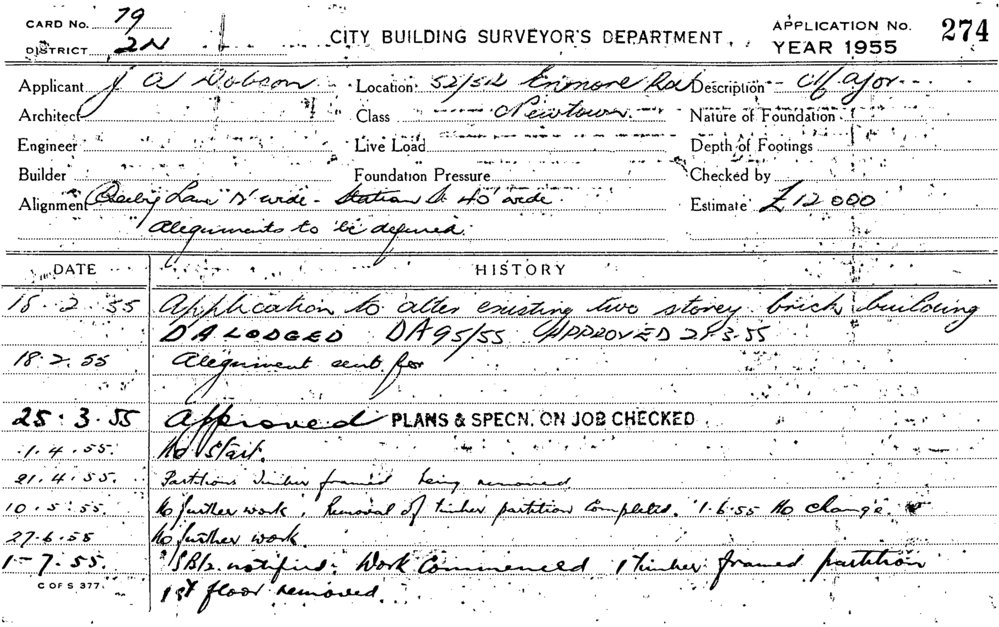 CARD No. 79
DISTRICT 2N
CITY BUILDING SURVEYOR'S DEPARTMENT
APPLICATION No. 274
YEAR 1955
Applicant J A Dobson Location 52/54 Enmore Rd Description Major
Architect Class Newtown Nature of Foundation
Engineer Live Load Depth of Footings
Builder Foundation Pressure Checked by
Alignment Lane 12' wide - Station St 40' wide Estimate £12000
Alignments to be defined
DATE HISTORY
18.2.55 Application to alter existing two storey brick building
DA LODGED DA 95/55 APPROVED 21.3.55
18.2.55 Alignment sent for
25.3.55 Approved PLANS & SPECN. ON JOB CHECKED
1.4.55. No start.
21.4.55. Partitions timber framed being removed
10.5.55. No further work. Removal of timber partition completed. 1.6.55 No change.
27.6.55 No further work.
1-7.55. notified. Work Commenced 1 timber framed partition
C OF S 377.
1st floor removed.